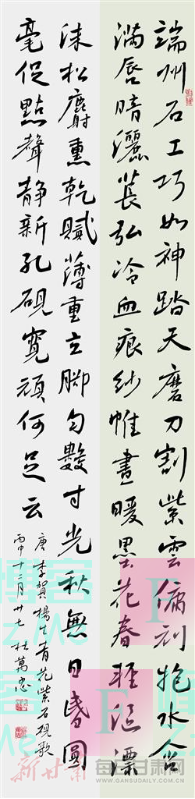 端州石工巧如神踏天磨刀割紫雲傭刓抱水含
滿唇暗灑萇弘冷血痕紗帷晝暖墨花春輕漚漂
沫松麝熏乾膩薄重立脚勻數寸光秋無日昏圓
毫促點聲靜新孔硯寬頑何足云
唐李賀楊生青花紫石硯歌
丙申十二月廿七杜萬忠
新甘肃
每日甘肃网